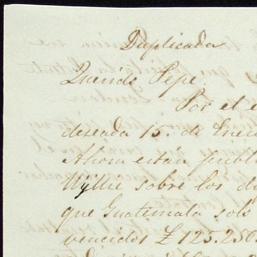 Duplicada
Querido Pepe
Por el
deseada 15. de Enero
Ahora estan
Wyllie sobre los d
que Guatemala solo
vencidos £125.250